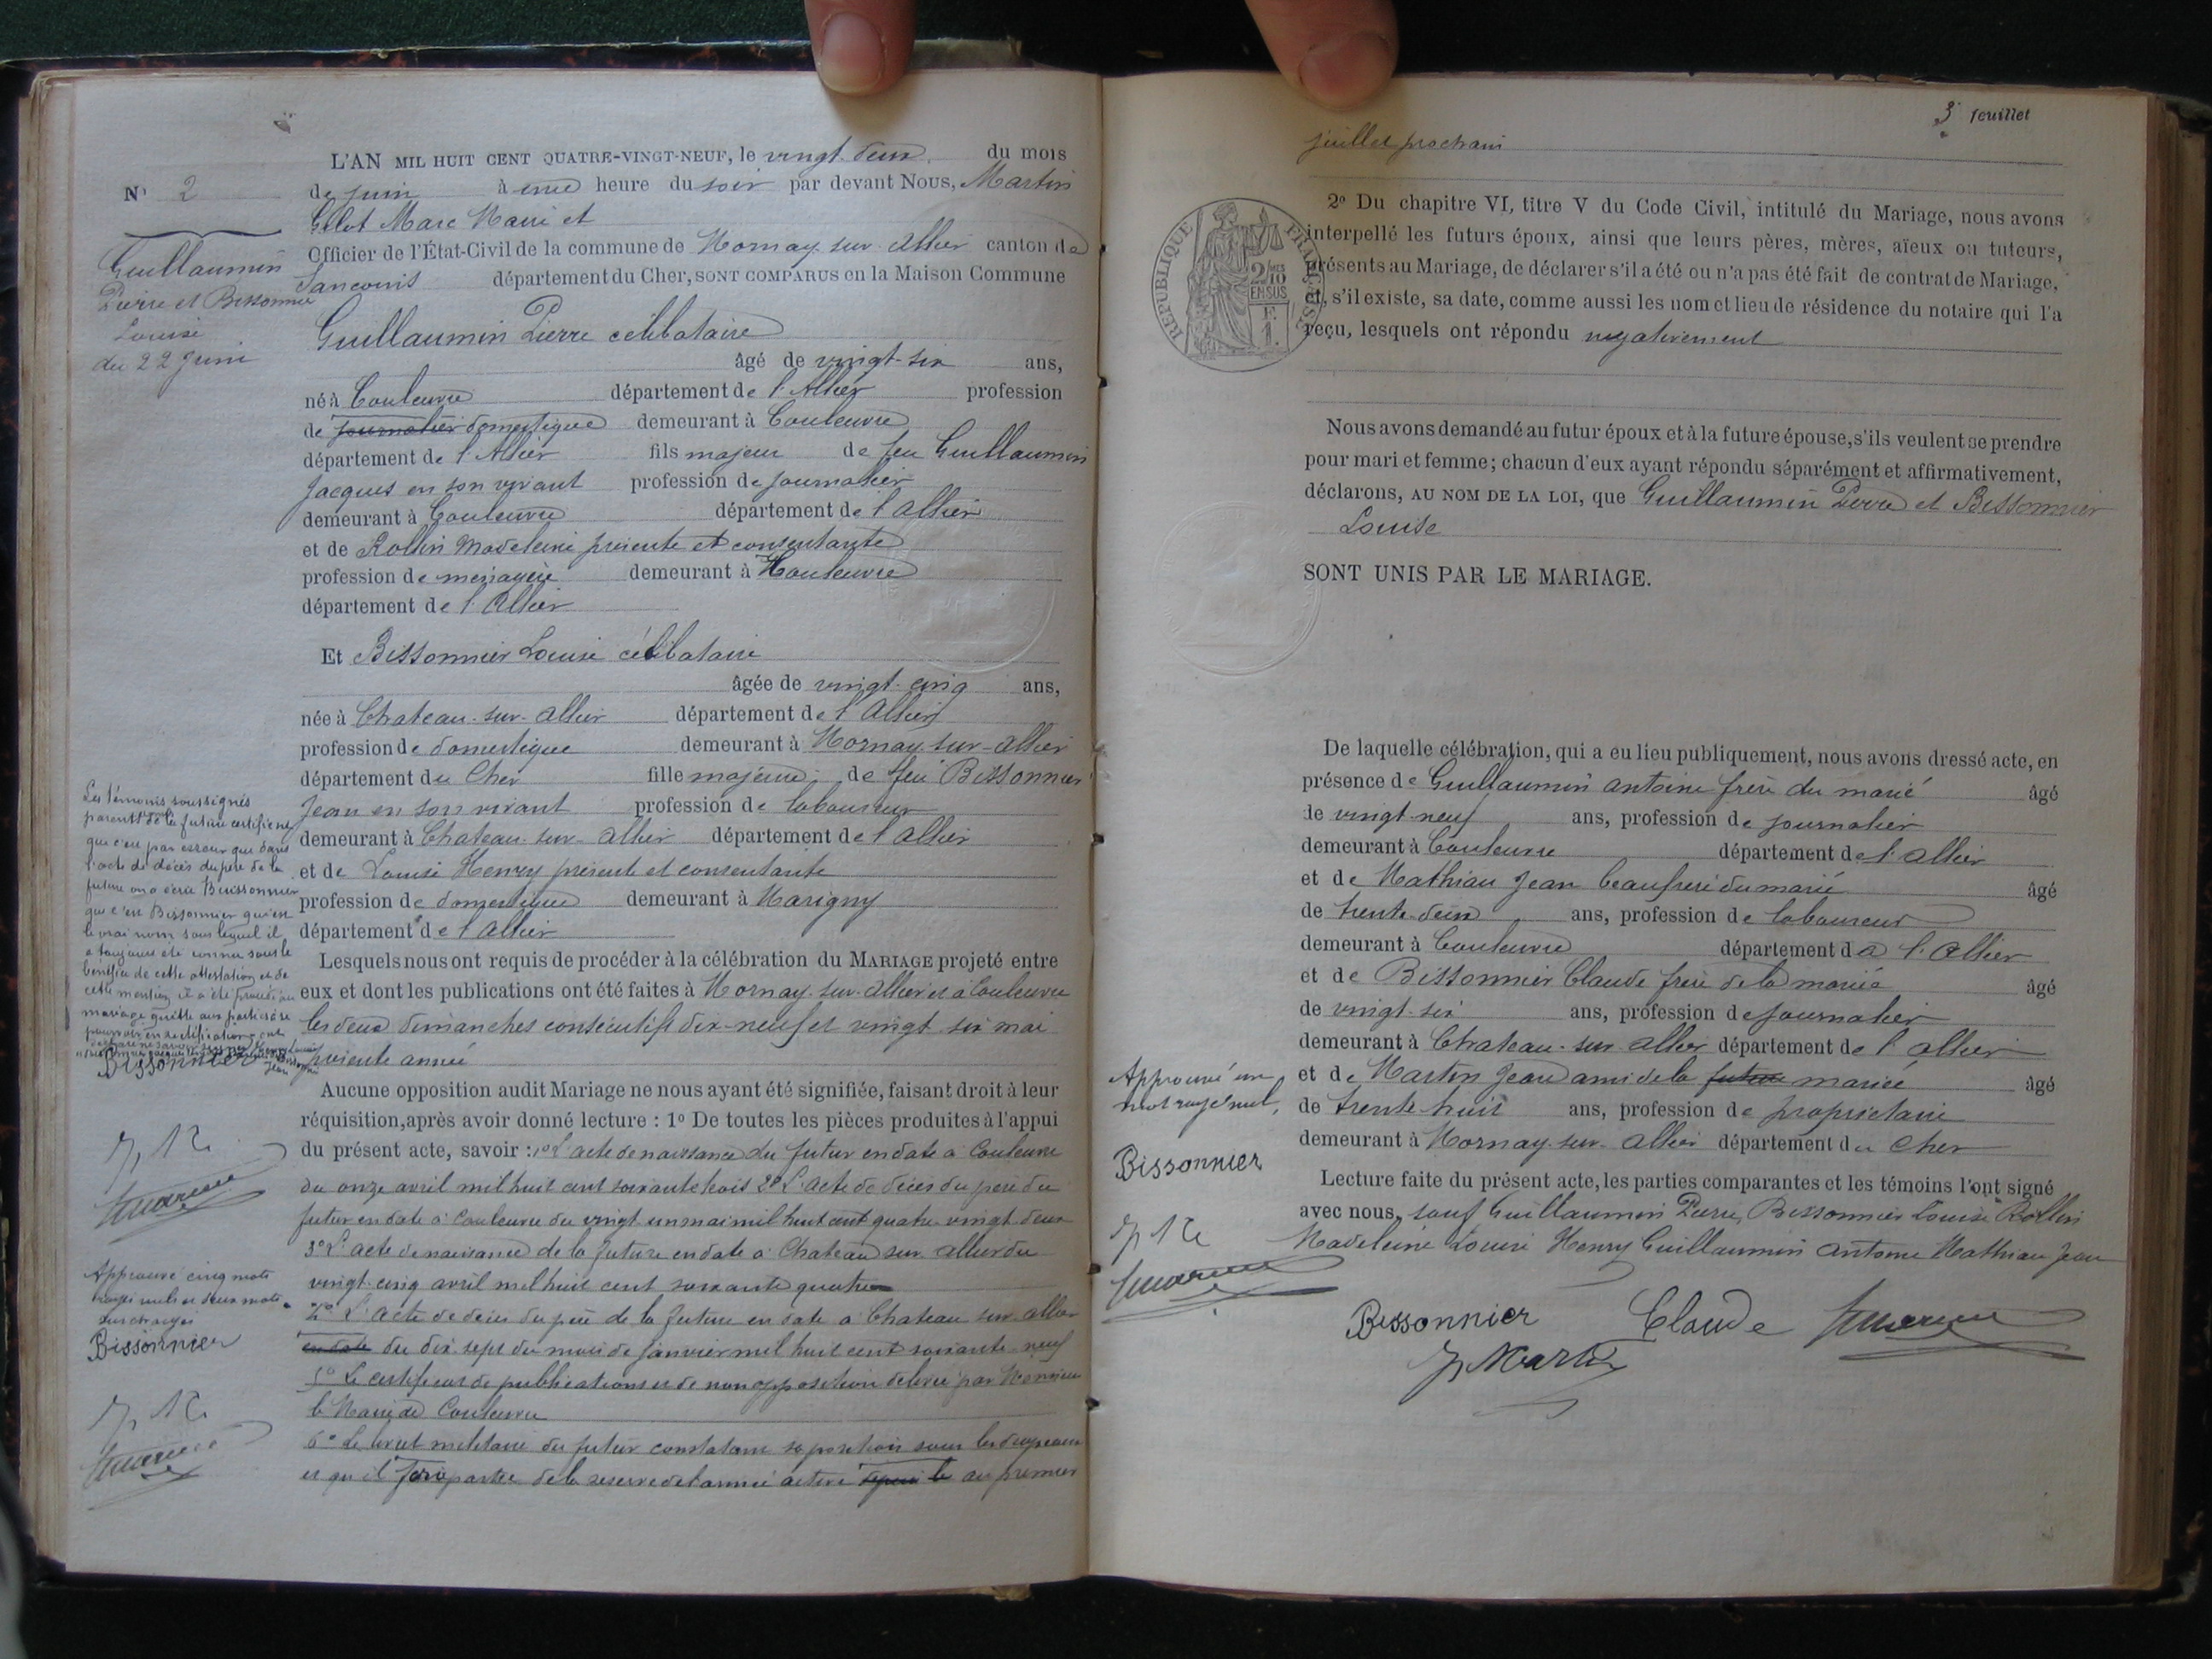 L'AN MIL HUIT CENT QUATRE-VINGT-NEUF, le vingt deux du mois
N° 2
de juin à une heure du soir par devant Nous, Martin
Gilot Marc Maire et
Officier de l'État-Civil de la commune de Mornay sur Allier canton de
Sancoins département du Cher, SONT COMPARUS en la Maison Commune
Guillaumin
Pierre et Bissonnier
Louise
du 22 Juin
Guillaumin Pierre célibataire
âgé de vingt-six ans,
né à Couleuvre département de l'Allier profession
de journalier domestique demeurant à Couleuvre
département de l'Allier fils majeur de feu Guillaumin
Jacques en son vivant profession de journalier
demeurant à Couleuvre département de l'Allier
et de Rollin Madeleine présente et consentante
profession de ménagère demeurant à Couleuvre
département de l'Allier
Et Bissonnier Louise célibataire
âgée de vingt-cinq ans,
née à Chateau-sur-Allier département de l'Allier
profession de domestique demeurant à Mornay-sur-Allier
département du Cher fille majeure de feu Bissonnier
Jean en son vivant profession de laboureur
demeurant à Chateau-sur-Allier département de l'Allier
et de Louise Henry présente et consentante
profession de domestique demeurant à Marigny
département de l'Allier
Les témoins soussignés
parents de la future certifient
que c'est par erreur que dans
l'acte de décès du père de la
future on a écrit Buissonnier
que c'est Bissonnier qui est
le vrai nom sous lequel il
a toujours été connu sous le
bénéfice de cette attestation et de
cette mention il a été procédé au
mariage quitte aux parties à se
pourvoir en rectification
Bissonnier
Lesquels nous ont requis de procéder à la célébration du MARIAGE projeté entre
eux et dont les publications ont été faites à Mornay-sur-Allier et à Couleuvre
les deux dimanches consécutifs dix-neuf et vingt six mai
présente année
Aucune opposition audit Mariage ne nous ayant été signifiée, faisant droit à leur
réquisition, après avoir donné lecture : 1° De toutes les pièces produites à l'appui
du présent acte, savoir : 1° L'acte de naissance du futur en date à Couleuvre
du onze avril mil huit cent soixante trois 2° L'acte de décès du père du
futur en date à Couleuvre du vingt un mai mil huit cent quatre vingt deux
3° L'acte de naissance de la future en date à Chateau sur Allier du
vingt-cinq avril mil huit cent soixante quatre
4° L'acte de décès du père de la future en date à Chateau sur Allier
en date du dix sept du mois de janvier mil huit cent soixante neuf
5° Le certificat de publications et de non opposition délivré par Monsieur
le Maire de Couleuvre
6° Le livret militaire du futur constatant sa position sous les drapeaux
et qu'il fera partie de la réserve de l'armée active depuis le au premier
Approuvé cinq mots
rayés nuls et deux mots
surchargés
Bissonnier
3e feuillet
juillet prochain
RÉPUBLIQUE FRANÇAISE
2/10 EN SUS
F. 1.
2° Du chapitre VI, titre V du Code Civil, intitulé du Mariage, nous avons
interpellé les futurs époux, ainsi que leurs pères, mères, aïeux ou tuteurs,
présents au Mariage, de déclarer s'il a été ou n'a pas été fait de contrat de Mariage,
et, s'il existe, sa date, comme aussi les nom et lieu de résidence du notaire qui l'a
reçu, lesquels ont répondu négativement
Nous avons demandé au futur époux et à la future épouse, s'ils veulent se prendre
pour mari et femme ; chacun d'eux ayant répondu séparément et affirmativement,
déclarons, AU NOM DE LA LOI, que Guillaumin Pierre et Bissonnier
Louise
SONT UNIS PAR LE MARIAGE.
De laquelle célébration, qui a eu lieu publiquement, nous avons dressé acte, en
présence de Guillaumin Antoine frère du marié âgé
de vingt-neuf ans, profession de journalier
demeurant à Couleuvre département de l'Allier
et de Mathiau Jean beaufrère du marié âgé
de trente-deux ans, profession de laboureur
demeurant à Couleuvre département de l'Allier
et de Bissonnier Claude frère de la mariée âgé
de vingt-six ans, profession de journalier
demeurant à Chateau-sur-Allier département de l'Allier
et de Martin Jean ami de la future mariée âgé
de trente huit ans, profession de propriétaire
demeurant à Mornay-sur-Allier département du Cher
Approuvé un
mot rayé nul,
Bissonnier
Lecture faite du présent acte, les parties comparantes et les témoins l'ont signé
avec nous, sauf Guillaumin Pierre, Bissonnier Louise Rollin
Madeleine Louise Henry Guillaumin Antoine Mathiau Jean
Bissonnier Claude
J Martin